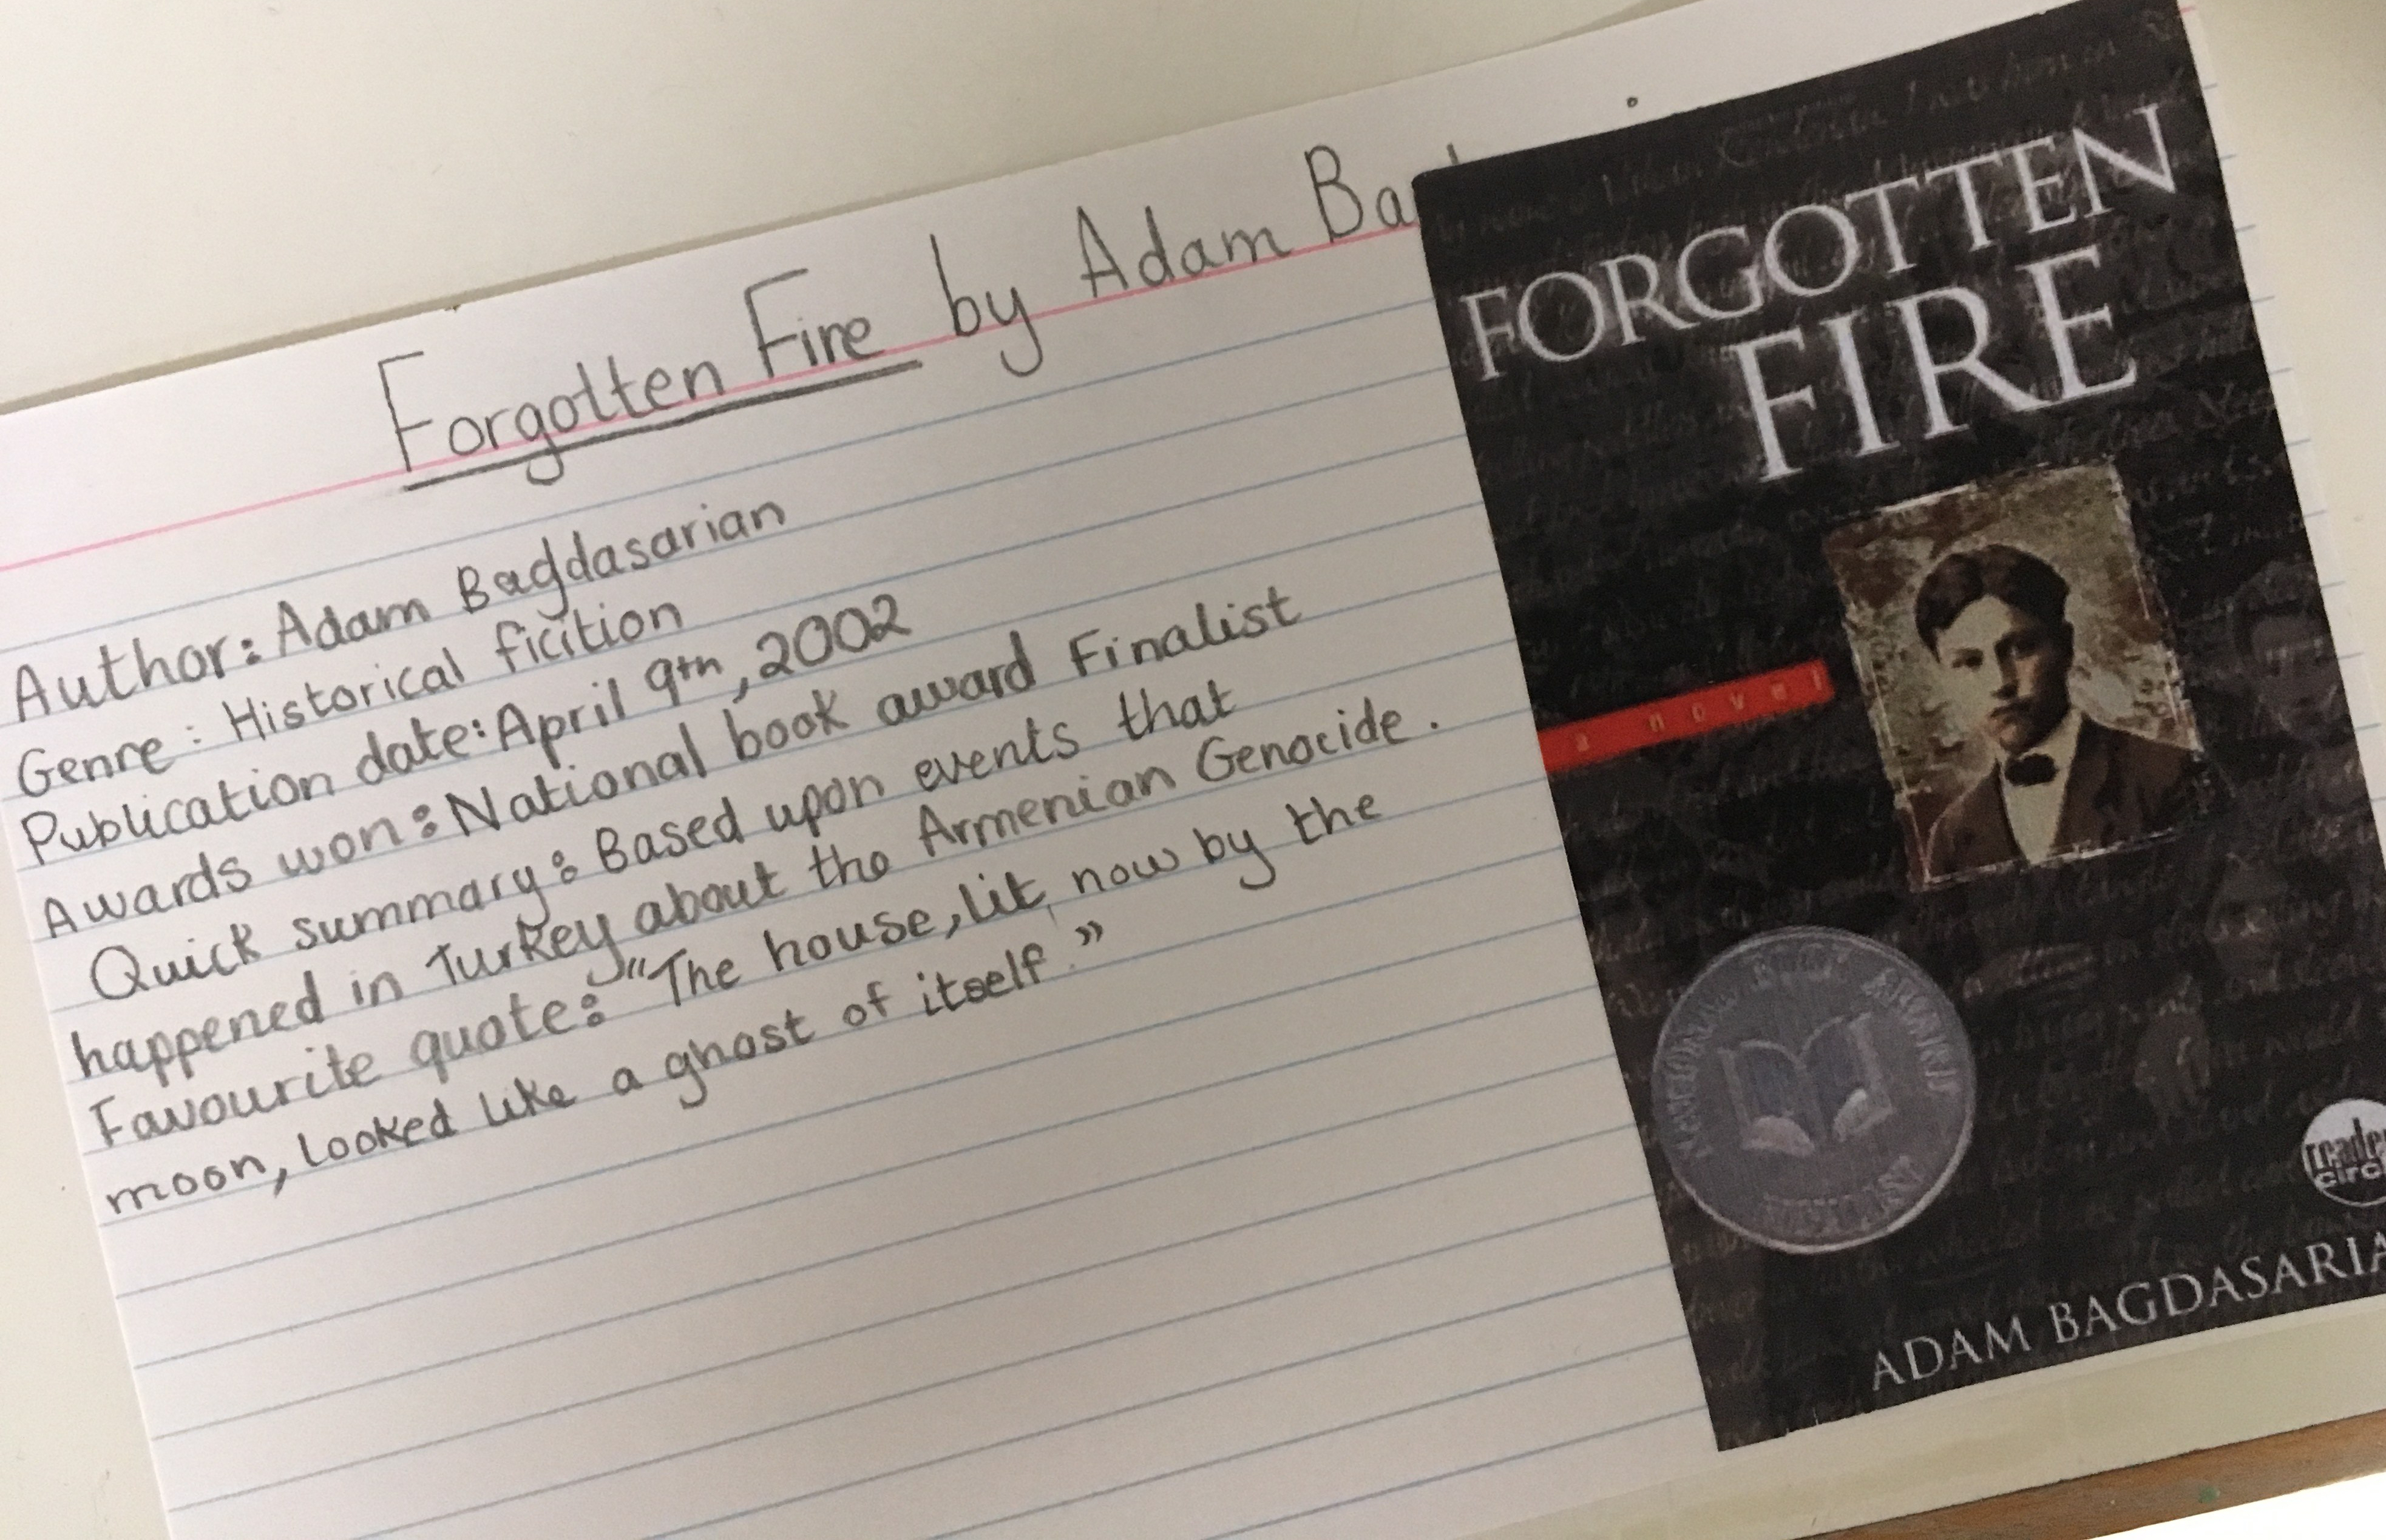 Forgotten Fire by Adam Ba
Author: Adam Bagdasarian
Genre: Historical ficition
Publication date: April 9th, 2002
Awards won: National book award Finalist
Quick summary: Based upon events that
happened in Turkey about the Armenian Genocide.
Favourite quote: "The house, lit now by the
moon, looked like a ghost of itself."
FORGOTTEN
FIRE
a novel
NATIONAL BOOK AWARD
FINALIST
reader
circ
ADAM BAGDASARIA